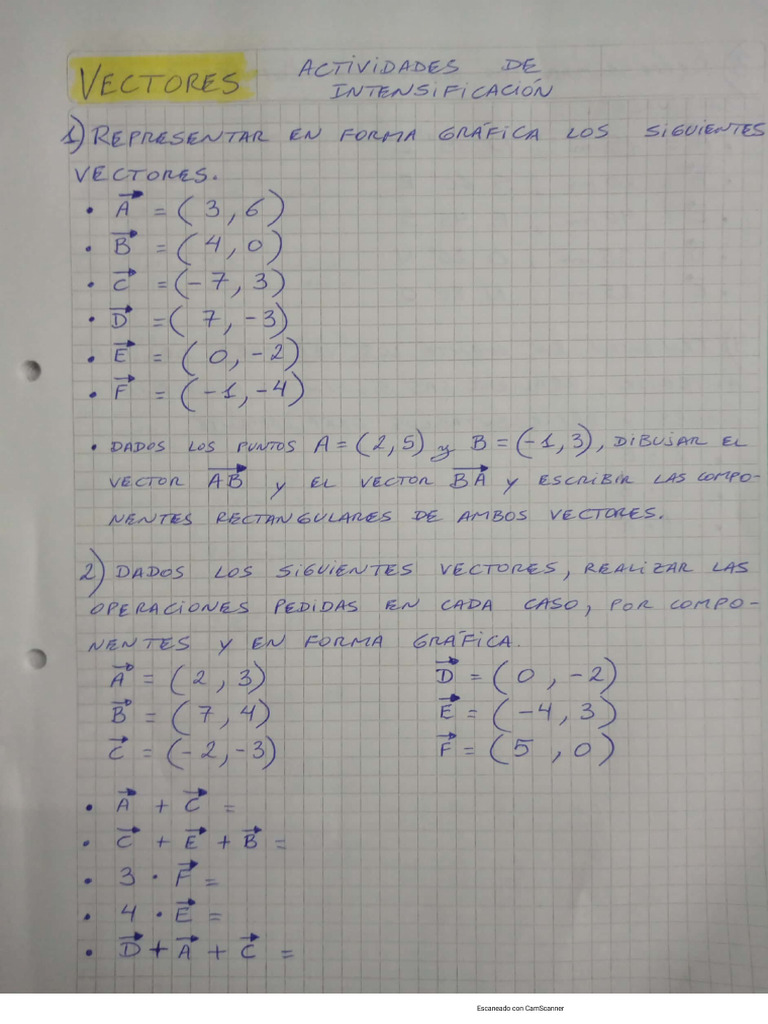 VECTORES ACTIVIDADES DE
INTENSIFICACIÓN
1) REPRESENTAR EN FORMA GRÁFICA LOS SIGUIENTES
VECTORES.
• A⃗ = (3, 6)
• B⃗ = (4, 0)
• C⃗ = (-7, 3)
• D⃗ = (7, -3)
• E⃗ = (0, -2)
• F⃗ = (-1, -4)
• DADOS LOS PUNTOS A = (2, 5) y B = (-1, 3), DIBUJAR EL
VECTOR A͞B⃗ y EL VECTOR B͞A⃗ y ESCRIBIR LAS COMPO-
NENTES RECTANGULARES DE AMBOS VECTORES.
2) DADOS LOS SIGUIENTES VECTORES, REALIZAR LAS
OPERACIONES PEDIDAS EN CADA CASO, POR COMPO-
NENTES Y EN FORMA GRÁFICA.
A⃗ = (2, 3) D⃗ = (0, -2)
B⃗ = (7, 4) E⃗ = (-4, 3)
C⃗ = (-2, -3) F⃗ = (5, 0)
• A⃗ + C⃗ =
• C⃗ + E⃗ + B⃗ =
• 3 · F⃗ =
• 4 · E⃗ =
• D⃗ + A⃗ + C⃗ =
Escaneado con CamScanner